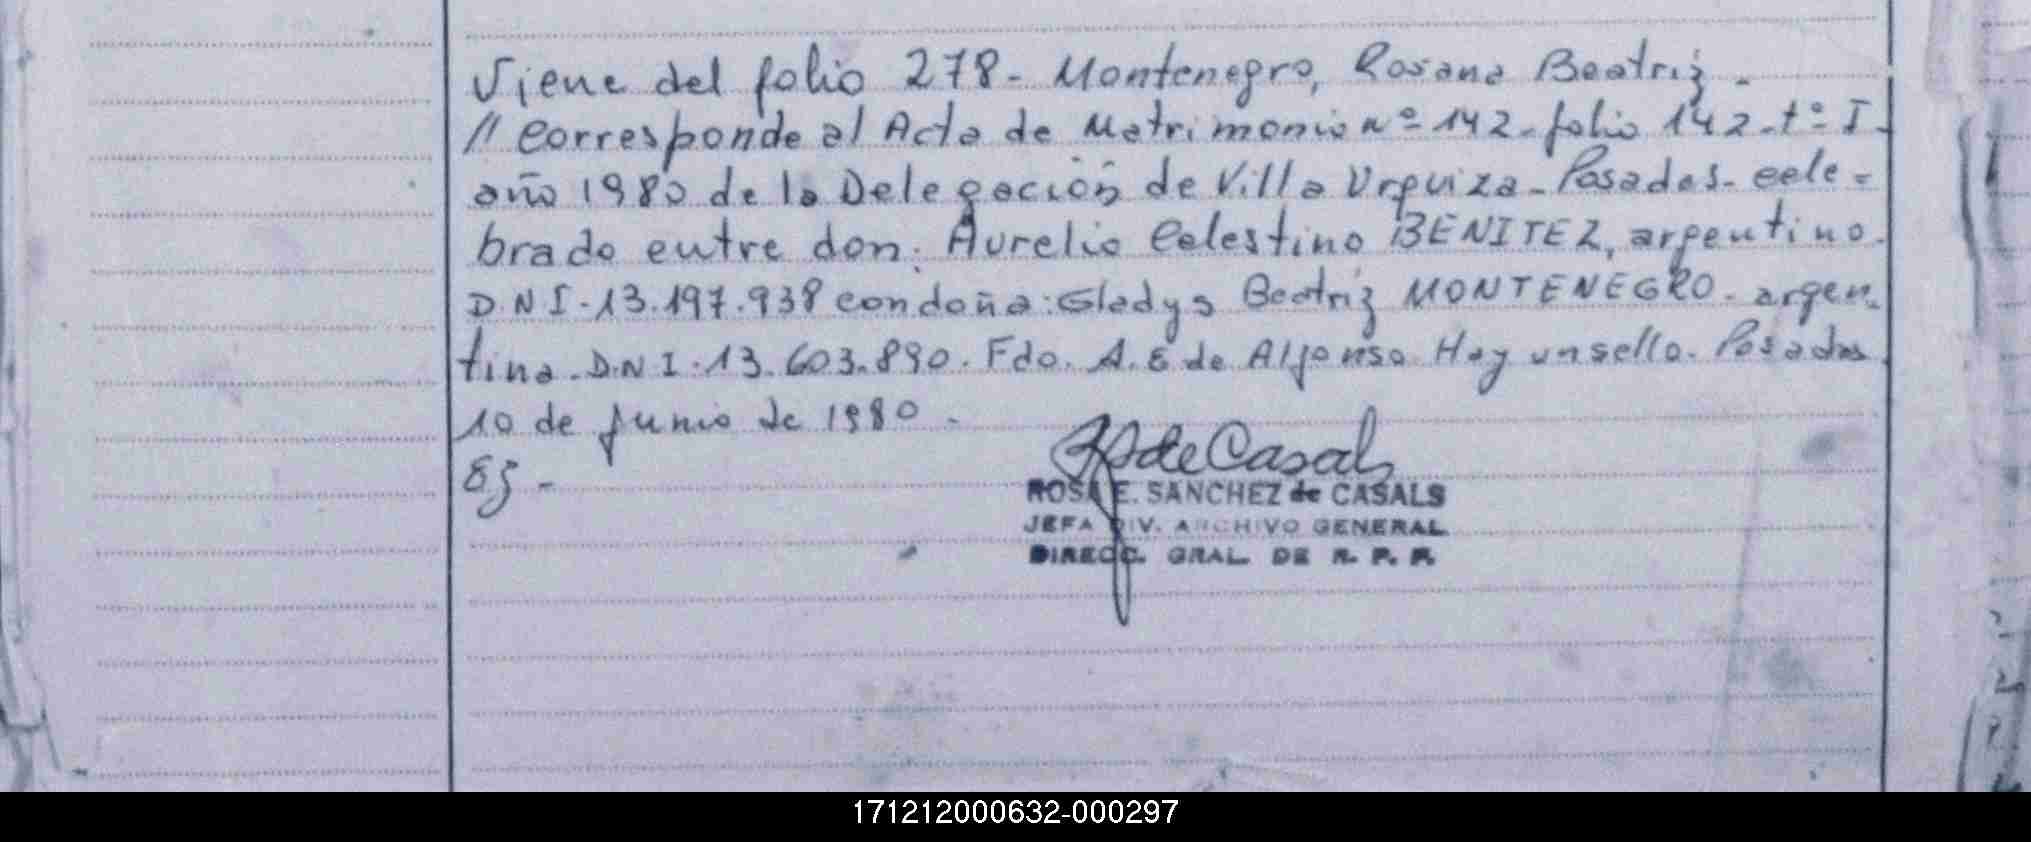 Viene del folio 278- Montenegro, Rosana Beatriz -
// Corresponde al Acta de Matrimonio nº 142- folio 142- tº I-
año 1980 de la Delegación de Villa Urquiza- Posadas- cele=
brado entre don: Aurelio Celestino BENITEZ, argentino.
D.N I-13.197.938 con doña: Gladys Beatriz MONTENEGRO- argen-
tina- D.N I.13.603.890. Fdo. A. E de Alfonso Hay un sello. Posadas
10 de Junio de 1980 -
de Casals
ROSA E. SANCHEZ de CASALS
JEFA DIV. ARCHIVO GENERAL
DIRECC. GRAL. DE R. P. P.
171212000632-000297